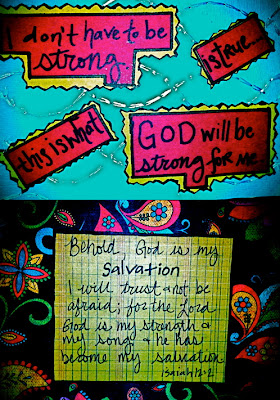 I don't have to be
strong.
is true...
this is what
GOD will be
strong for me.
Behold, God is my
Salvation
I will trust & not be
afraid; for the Lord
God is my strength &
my song & he has
become my salvation
Isaiah 12:2